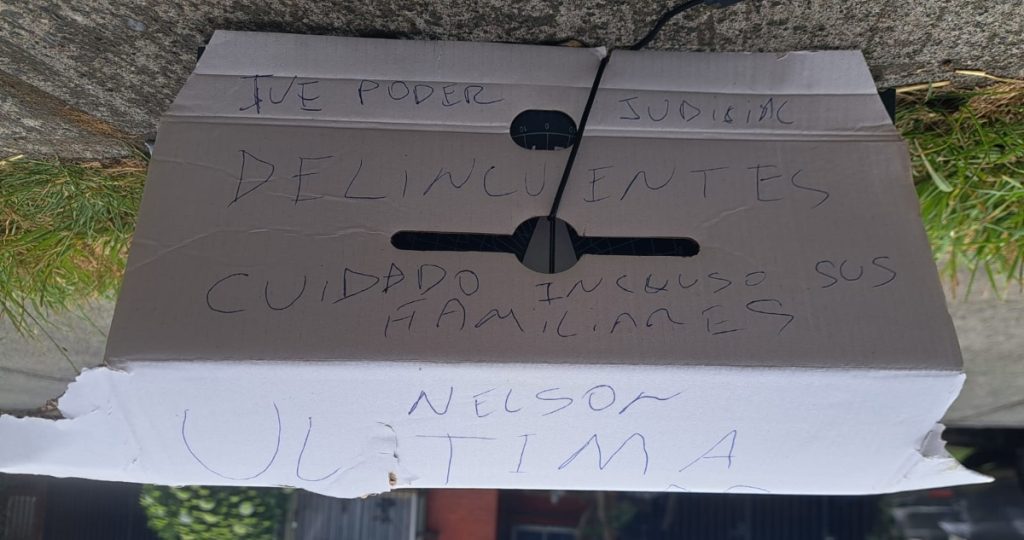 IVE PODER JUDICIAL
DELINCUENTES
CUIDADO INCLUSO SUS
FAMILIARES
NELSON
ULTIMA